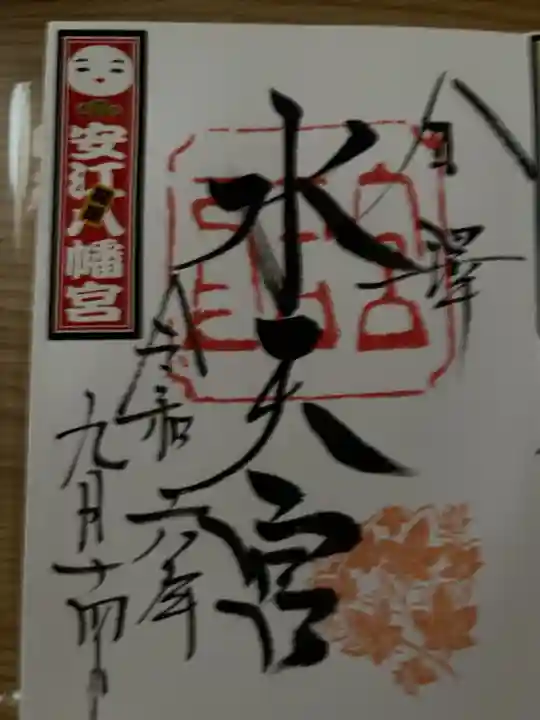 金澤
水天宮
令和六年
九月十四日
安江八幡宮